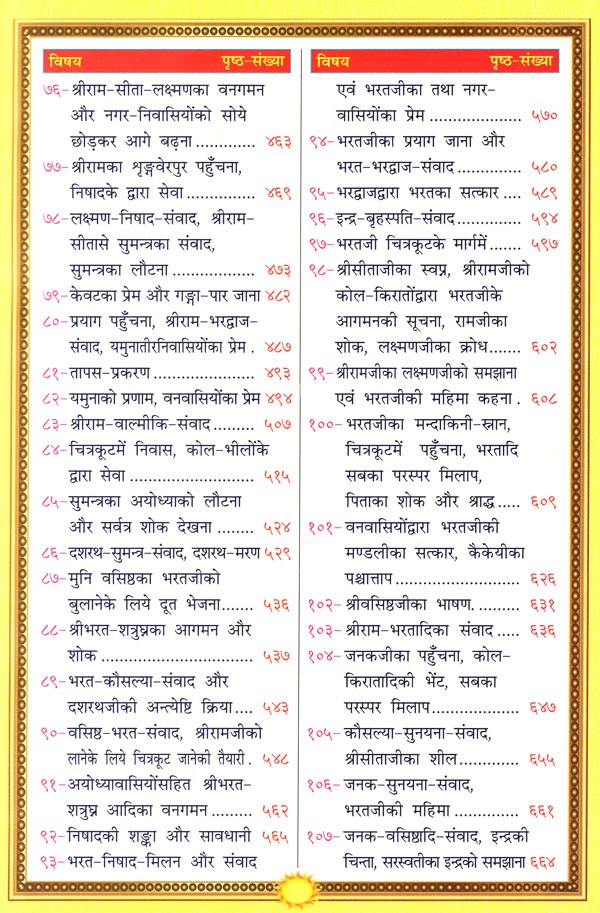 विषय पृष्ठ-संख्या
७६-श्रीराम-सीता-लक्ष्मणका वनगमन
और नगर-निवासियोंको सोये
छोड़कर आगे बढ़ना ............. ४६३
७७-श्रीरामका शृङ्गवेरपुर पहुँचना,
निषादके द्वारा सेवा ............... ४६९
७८-लक्ष्मण-निषाद-संवाद, श्रीराम-
सीतासे सुमन्त्रका संवाद,
सुमन्त्रका लौटना .................. ४७३
७९-केवटका प्रेम और गङ्गा-पार जाना ४८२
८०-प्रयाग पहुँचना, श्रीराम-भरद्वाज-
संवाद, यमुनातीरनिवासियोंका प्रेम . ४८७
८१-तापस-प्रकरण ..................... ४९३
८२-यमुनाको प्रणाम, वनवासियोंका प्रेम ४९४
८३-श्रीराम-वाल्मीकि-संवाद ......... ५०७
८४-चित्रकूटमें निवास, कोल-भीलोंके
द्वारा सेवा ........................... ५१५
८५-सुमन्त्रका अयोध्याको लौटना
और सर्वत्र शोक देखना ........ ५२४
८६-दशरथ-सुमन्त्र-संवाद, दशरथ-मरण ५२९
८७-मुनि वसिष्ठका भरतजीको
बुलानेके लिये दूत भेजना....... ५३६
८८-श्रीभरत-शत्रुघ्नका आगमन और
शोक ................................. ५३७
८९-भरत-कौसल्या-संवाद और
दशरथजीकी अन्त्येष्टि क्रिया.... ५४३
९०-वसिष्ठ-भरत-संवाद, श्रीरामजीको
लानेके लिये चित्रकूट जानेकी तैयारी . ५४८
९१-अयोध्यावासियोंसहित श्रीभरत-
शत्रुघ्न आदिका वनगमन ......... ५६२
९२-निषादकी शङ्का और सावधानी ५६५
९३-भरत-निषाद-मिलन और संवाद
विषय पृष्ठ-संख्या
एवं भरतजीका तथा नगर-
वासियोंका प्रेम .................... ५७०
९४-भरतजीका प्रयाग जाना और
भरत-भरद्वाज-संवाद ............. ५८०
९५-भरद्वाजद्वारा भरतका सत्कार .... ५८९
९६-इन्द्र-बृहस्पति-संवाद.............. ५९४
९७-भरतजी चित्रकूटके मार्गमें....... ५९७
९८-श्रीसीताजीका स्वप्न, श्रीरामजीको
कोल-किरातोंद्वारा भरतजीके
आगमनकी सूचना, रामजीका
शोक, लक्ष्मणजीका क्रोध....... ६०२
९९-श्रीरामजीका लक्ष्मणजीको समझाना
एवं भरतजीकी महिमा कहना . ६०८
१००-भरतजीका मन्दाकिनी-स्नान,
चित्रकूटमें पहुँचना, भरतादि
सबका परस्पर मिलाप,
पिताका शोक और श्राद्ध..... ६०९
१०१-वनवासियोंद्वारा भरतजीकी
मण्डलीका सत्कार, कैकेयीका
पश्चात्ताप ........................... ६२६
१०२-श्रीवसिष्ठजीका भाषण. ......... ६३१
१०३-श्रीराम-भरतादिका संवाद ..... ६३६
१०४-जनकजीका पहुँचना, कोल-
किरातादिकी भेंट, सबका
परस्पर मिलाप................... ६४७
१०५-कौसल्या-सुनयना-संवाद,
श्रीसीताजीका शील............. ६५५
१०६-जनक-सुनयना-संवाद,
भरतजीकी महिमा .............. ६६१
१०७-जनक-वसिष्ठादि-संवाद, इन्द्रकी
चिन्ता, सरस्वतीका इन्द्रको समझाना ६६४